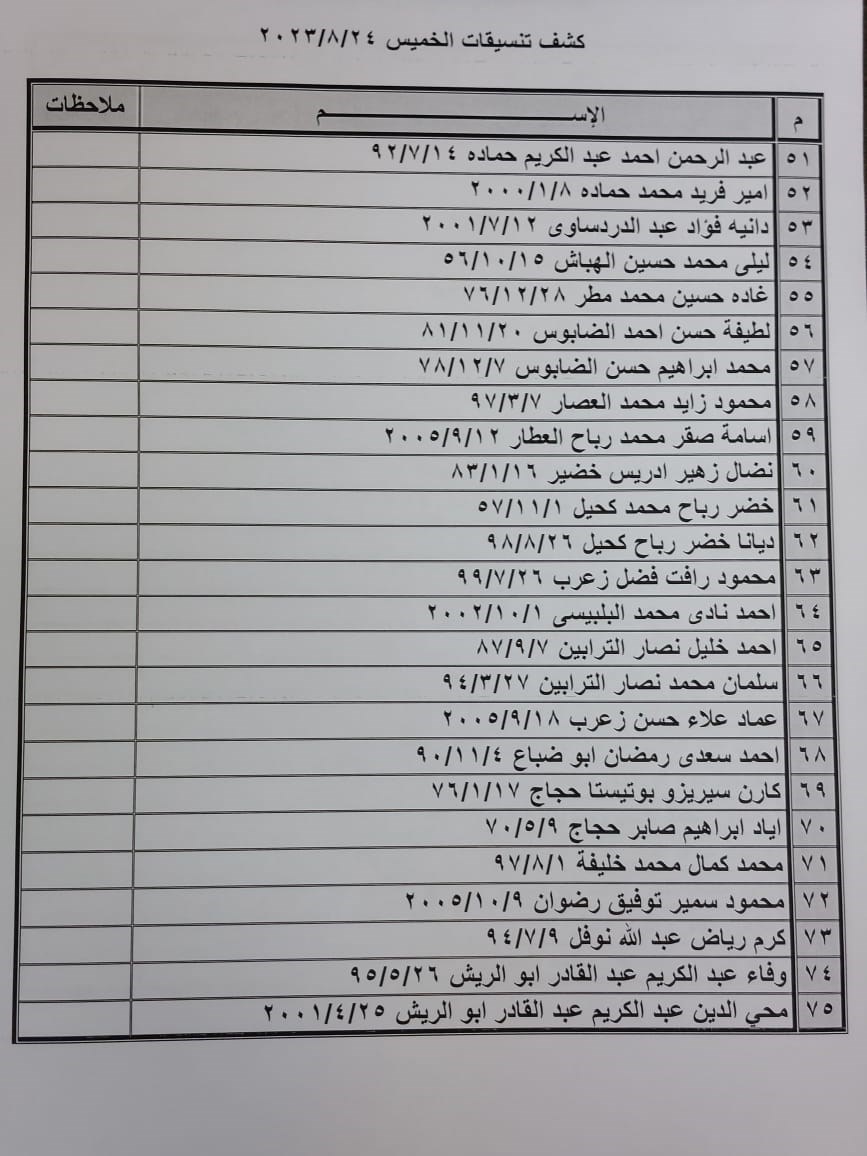 كشف تنسيقات الخميس ٢٠٢٣/٨/٢٤
م الإســـــــــم ملاحظات
٥١ عبد الرحمن احمد عبد الكريم حماده ٩٢/٧/١٤
٥٢ امير فريد محمد حماده ٢٠٠٠/١/٨
٥٣ دانيه فؤاد عبد الدردساوى ٢٠٠١/٧/١٢
٥٤ ليلى محمد حسين الهباش ٥٦/١٠/١٥
٥٥ غاده حسين محمد مطر ٧٦/١٢/٢٨
٥٦ لطيفة حسن احمد الضابوس ٨١/١١/٢٠
٥٧ محمد ابراهيم حسن الضابوس ٧٨/١٢/٧
٥٨ محمود زايد محمد العصار ٩٧/٣/٧
٥٩ اسامة صقر محمد رباح العطار ٢٠٠٥/٩/١٢
٦٠ نضال زهير ادريس خضير ٨٣/١/١٦
٦١ خضر رباح محمد كحيل ٥٧/١١/١
٦٢ ديانا خضر رباح كحيل ٩٨/٨/٢٦
٦٣ محمود رافت فضل زعرب ٩٩/٧/٢٦
٦٤ احمد نادى محمد البلبيسى ٢٠٠٢/١٠/١
٦٥ احمد خليل نصار الترابين ٨٧/٩/٧
٦٦ سلمان محمد نصار الترابين ٩٤/٣/٢٧
٦٧ عماد علاء حسن زعرب ٢٠٠٥/٩/١٨
٦٨ احمد سعدى رمضان ابو ضباع ٩٠/١١/٤
٦٩ كارن سيريزو بوتيستا حجاج ٧٦/١/١٧
٧٠ اياد ابراهيم صابر حجاج ٧٠/٥/٩
٧١ محمد كمال محمد خليفة ٩٧/٨/١
٧٢ محمود سمير توفيق رضوان ٢٠٠٥/١٠/٩
٧٣ كرم رياض عبد الله نوفل ٩٤/٧/٩
٧٤ وفاء عبد الكريم عبد القادر ابو الريش ٩٥/٥/٢٦
٧٥ محي الدين عبد الكريم عبد القادر ابو الريش ٢٠٠١/٤/٢٥